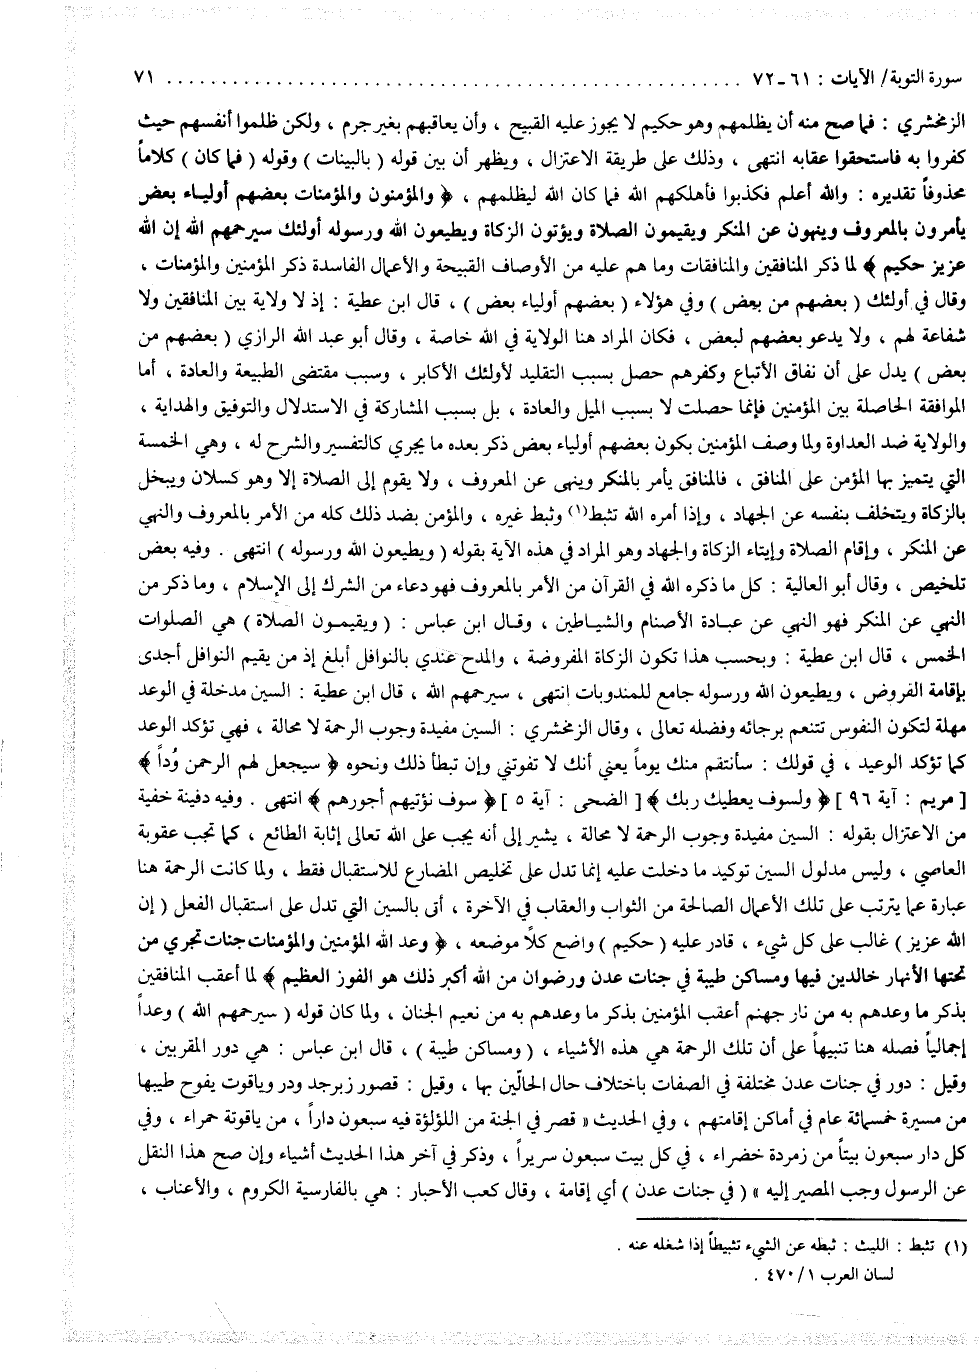 سورة التوبة/ الآيات : ٦١ـ٧٢ . . . . . . . . . . . . . . . . . . . . . . . . . . . . . . . . . . . . . . . . . . . . . . . . ٧١
الزمخشري : فما صح منه أن يظلمهم وهو حكيم لا يجوز عليه القبيح ، وأن يعاقبهم بغير جرم ، ولكن ظلموا أنفسهم حيث
كفروا به فاستحقوا عقابه انتهى ، وذلك على طريقة الاعتزال ، ويظهر أن بين قوله ( بالبينات ) وقوله ( فما كان ) كلاماً
محذوفاً تقديره : والله أعلم فكذبوا فأهلكهم الله فما كان الله ليظلمهم ، ﴿ والمؤمنون والمؤمنات بعضهم أولياء بعض
يأمرون بالمعروف وينهون عن المنكر ويقيمون الصلاة ويؤتون الزكاة ويطيعون الله ورسوله أولئك سيرحمهم الله إن الله
عزيز حكيم ﴾ لما ذكر المنافقين والمنافقات وما هم عليه من الأوصاف القبيحة والأعمال الفاسدة ذكر المؤمنين والمؤمنات ،
وقال في أولئك ( بعضهم من بعض ) وفي هؤلاء ( بعضهم أولياء بعض ) ، قال ابن عطية : إذ لا ولاية بين المنافقين ولا
شفاعة لهم ، ولا يدعو بعضهم لبعض ، فكان المراد هنا الولاية في الله خاصة ، وقال أبو عبد الله الرازي ( بعضهم من
بعض ) يدل على أن نفاق الأتباع وكفرهم حصل بسبب التقليد لأولئك الأكابر ، وسبب مقتضى الطبيعة والعادة ، أما
الموافقة الحاصلة بين المؤمنين فإنما حصلت لا بسبب الميل والعادة ، بل بسبب المشاركة في الاستدلال والتوفيق والهداية ،
والولاية ضد العداوة ولما وصف المؤمنين بكون بعضهم أولياء بعض ذكر بعده ما يجري كالتفسير والشرح له ، وهي الخمسة
التي يتميز بها المؤمن على المنافق ، فالمنافق يأمر بالمنكر وينهى عن المعروف ، ولا يقوم إلى الصلاة إلا وهو كسلان ويبخل
بالزكاة ويتخلف بنفسه عن الجهاد ، وإذا أمره الله تثبط(١) وثبط غيره ، والمؤمن بضد ذلك كله من الأمر بالمعروف والنهي
عن المنكر ، وإقام الصلاة وإيتاء الزكاة والجهاد وهو المراد في هذه الآية بقوله ( ويطيعون الله ورسوله ) انتهى . وفيه بعض
تلخيص ، وقال أبو العالية : كل ما ذكره الله في القرآن من الأمر بالمعروف فهو دعاء من الشرك إلى الإسلام ، وما ذكر من
النهي عن المنكر فهو النهي عن عبادة الأصنام والشياطين ، وقال ابن عباس : ( ويقيمون الصلاة ) هي الصلوات
الخمس ، قال ابن عطية : وبحسب هذا تكون الزكاة المفروضة ، والمدح عندي بالنوافل أبلغ إذ من يقيم النوافل أجدى
بإقامة الفروض ، ويطيعون الله ورسوله جامع للمندوبات إنتهى ، سيرحمهم الله ، قال ابن عطية : السين مدخلة في الوعد
مهلة لتكون النفوس تتنعم برجائه وفضله تعالى ، وقال الزمخشري : السين مفيدة وجوب الرحمة لا محالة ، فهي تؤكد الوعد
كما تؤكد الوعيد ، في قولك : سأنتقم منك يوماً يعني أنك لا تفوتني وإن تبطأ ذلك ونحوه ﴿ سيجعل لهم الرحمن وُداً ﴾
[ مريم : آية ٩٦ ] ﴿ ولسوف يعطيك ربك ﴾ [ الضحى : آية ٥ ] ﴿ سوف نؤتيهم أجورهم ﴾ انتهى . وفيه دفينة خفية
من الاعتزال بقوله : السين مفيدة وجوب الرحمة لا محالة ، يشير إلى أنه يجب على الله تعالى إثابة الطائع ، كما تجب عقوبة
العاصي ، وليس مدلول السين توكيد ما دخلت عليه إنما تدل على تخليص المضارع للاستقبال فقط ، ولما كانت الرحمة هنا
عبارة عما يترتب على تلك الأعمال الصالحة من الثواب والعقاب في الآخرة ، أتى بالسين التي تدل على استقبال الفعل ( إن
الله عزيز ) غالب على كل شيء ، قادر عليه ( حكيم ) واضع كلاً موضعه ، ﴿ وعد الله المؤمنين والمؤمنات جنات تجري من
تحتها الأنهار خالدين فيها ومساكن طيبة في جنات عدن ورضوان من الله أكبر ذلك هو الفوز العظيم ﴾ لما أعقب المنافقين
بذكر ما وعدهم به من نار جهنم أعقب المؤمنين بذكر ما وعدهم به من نعيم الجنان ، ولما كان قوله ( سيرحمهم الله ) وعداً
إجمالياً فصله هنا تنبيهاً على أن تلك الرحمة هي هذه الأشياء ، ( ومساكن طيبة ) ، قال ابن عباس : هي دور المقربين ،
وقيل : دور في جنات عدن مختلفة في الصفات باختلاف حال الحالّين بها ، وقيل : قصور زبرجد ودر وياقوت يفوح طيبها
من مسيرة خمسمائة عام في أماكن إقامتهم ، وفي الحديث « قصر في الجنة من اللؤلؤة فيه سبعون داراً ، من ياقوتة حمراء ، وفي
كل دار سبعون بيتاً من زمردة خضراء ، في كل بيت سبعون سريراً ، وذكر في آخر هذا الحديث أشياء وإن صح هذا النقل
عن الرسول وجب المصير إليه » ( في جنات عدن ) أي إقامة ، وقال كعب الأحبار : هي بالفارسية الكروم ، والأعناب ،
(١) تثبط : الليث : ثبطه عن الشيء تثبيطاً إذا شغله عنه .
لسان العرب ١/ ٤٧٠ .